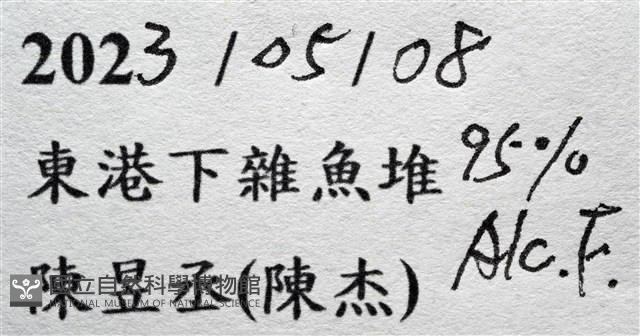 2023/05/08
東港下雜魚堆 95%
Alc. F.
陳昱丞(陳杰)
國立自然科學博物館
NATIONAL MUSEUM OF NATURAL SCIENCE